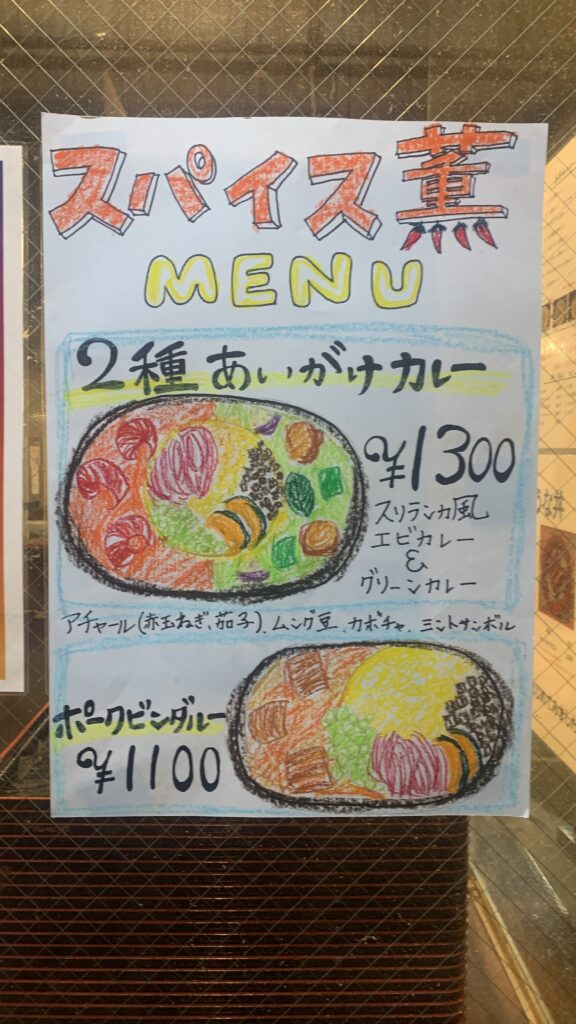 スパイス薫
MENU
2種あいがけカレー
¥1300
スリランカ風
エビカレー
&
グリーンカレー
アチャール(赤玉ねぎ、茄子)、ムング豆、カボチャ、ミントサンボル
ポークビンダルー
¥1100
うな丼